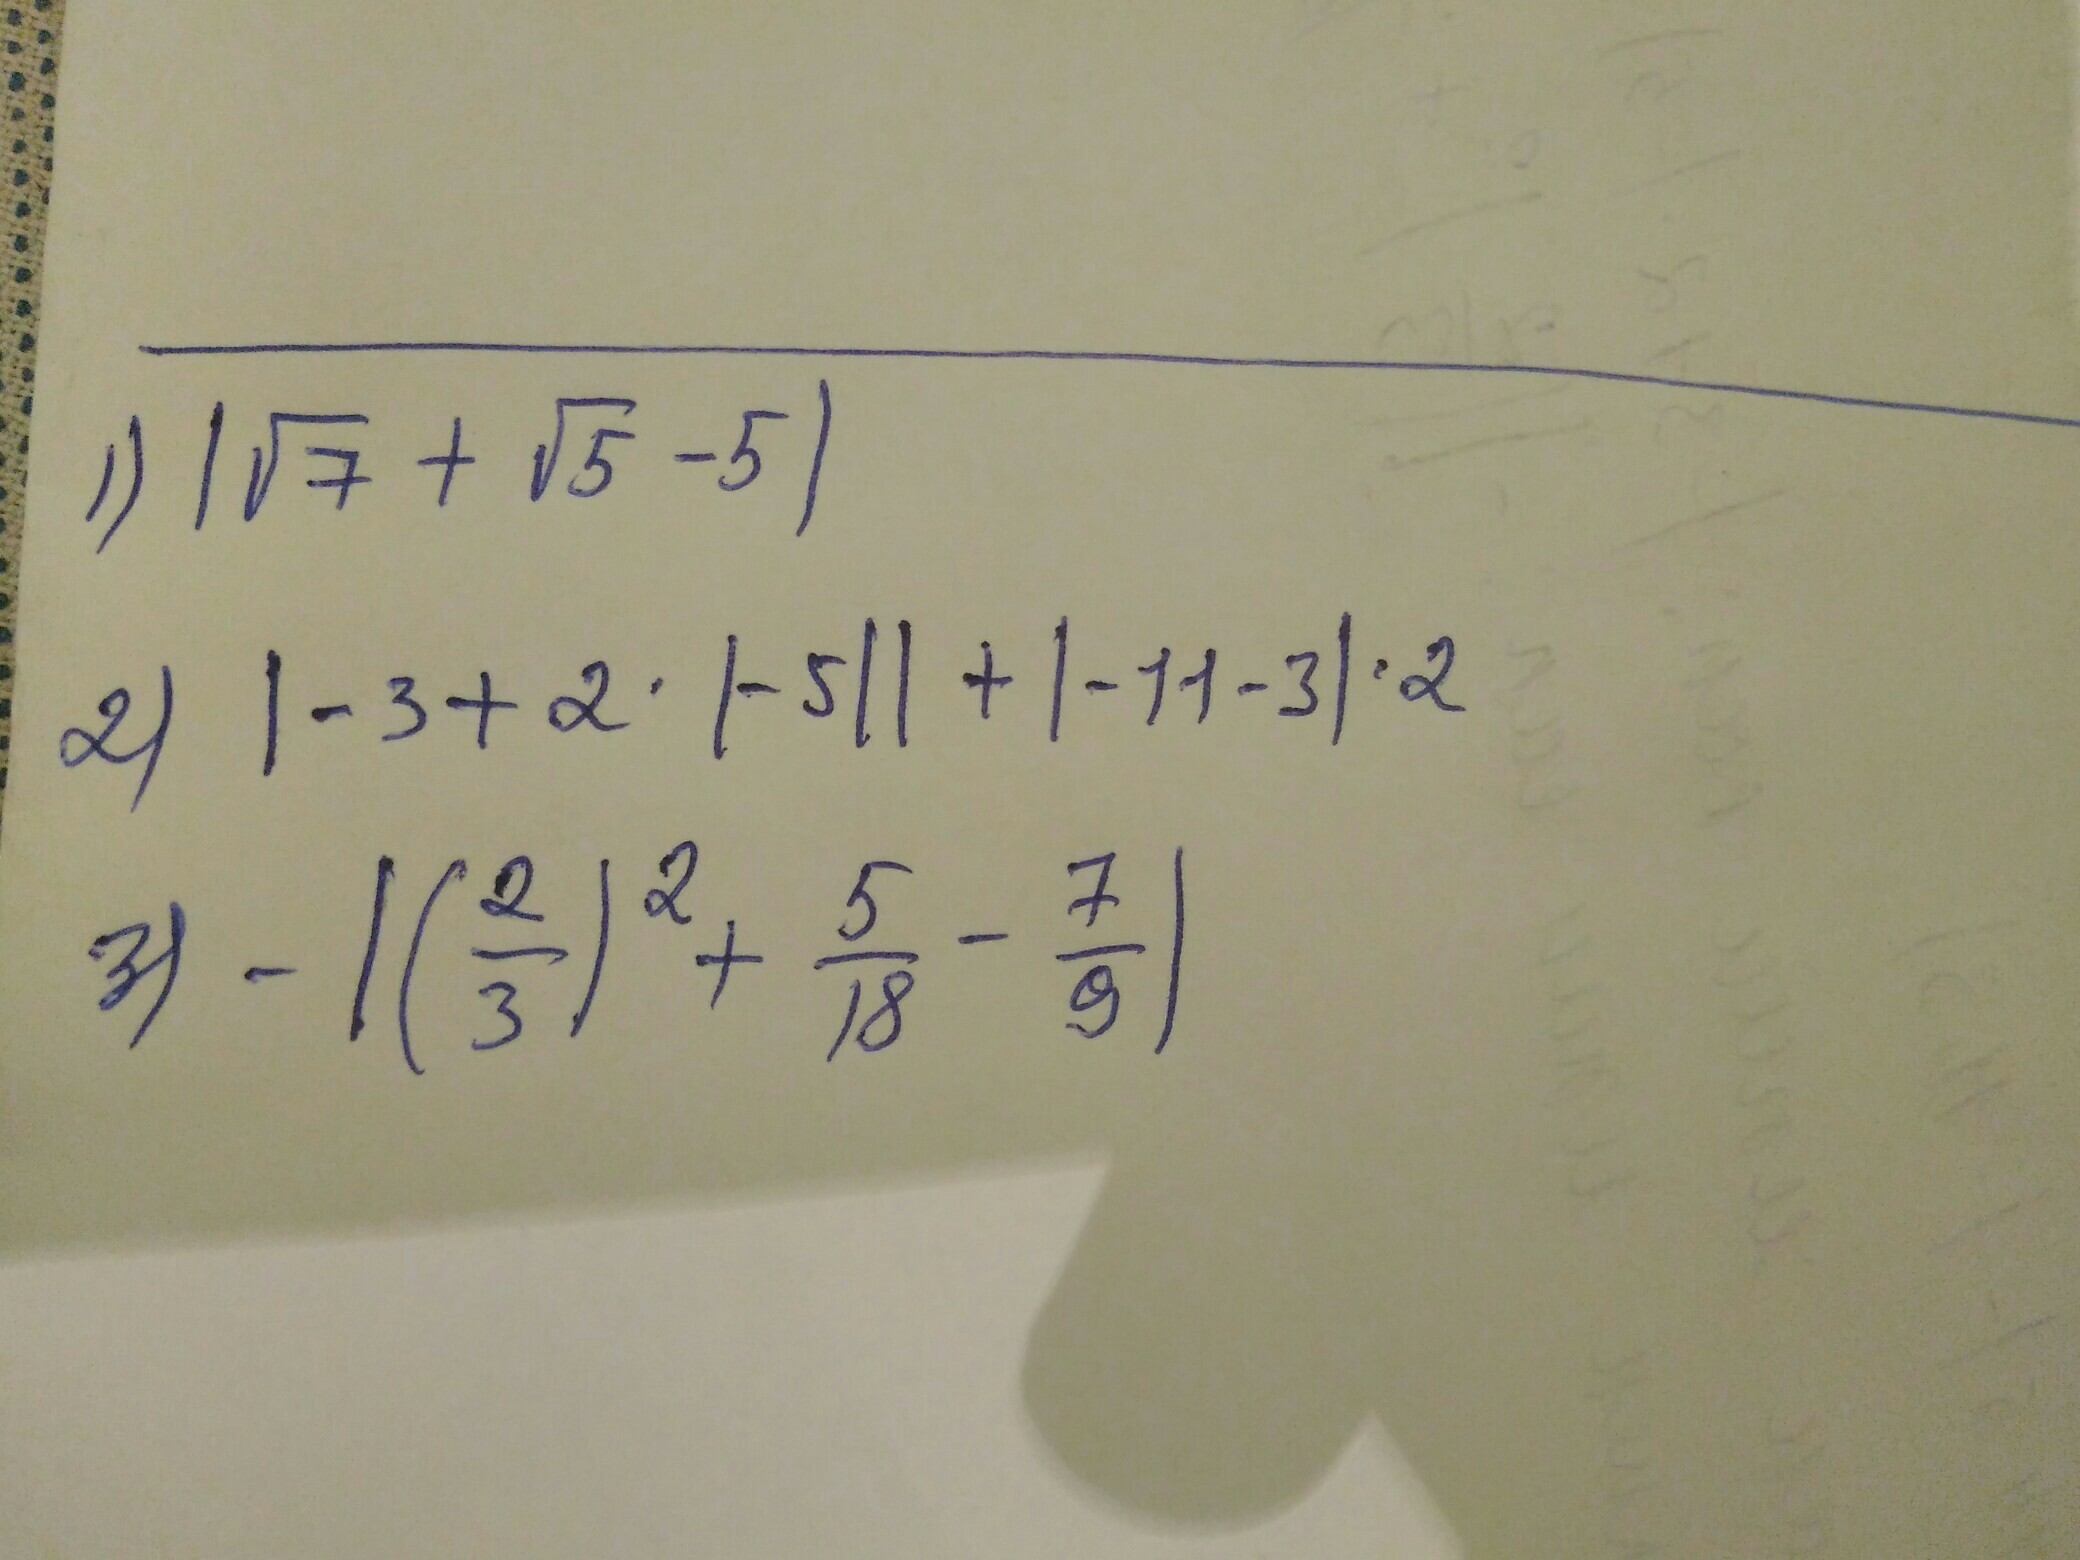 1) |√7 + √5 -5|
2) |-3+2·|-5|| + |-11-3|·2
3) -|(2/3)² + 5/18 - 7/9|